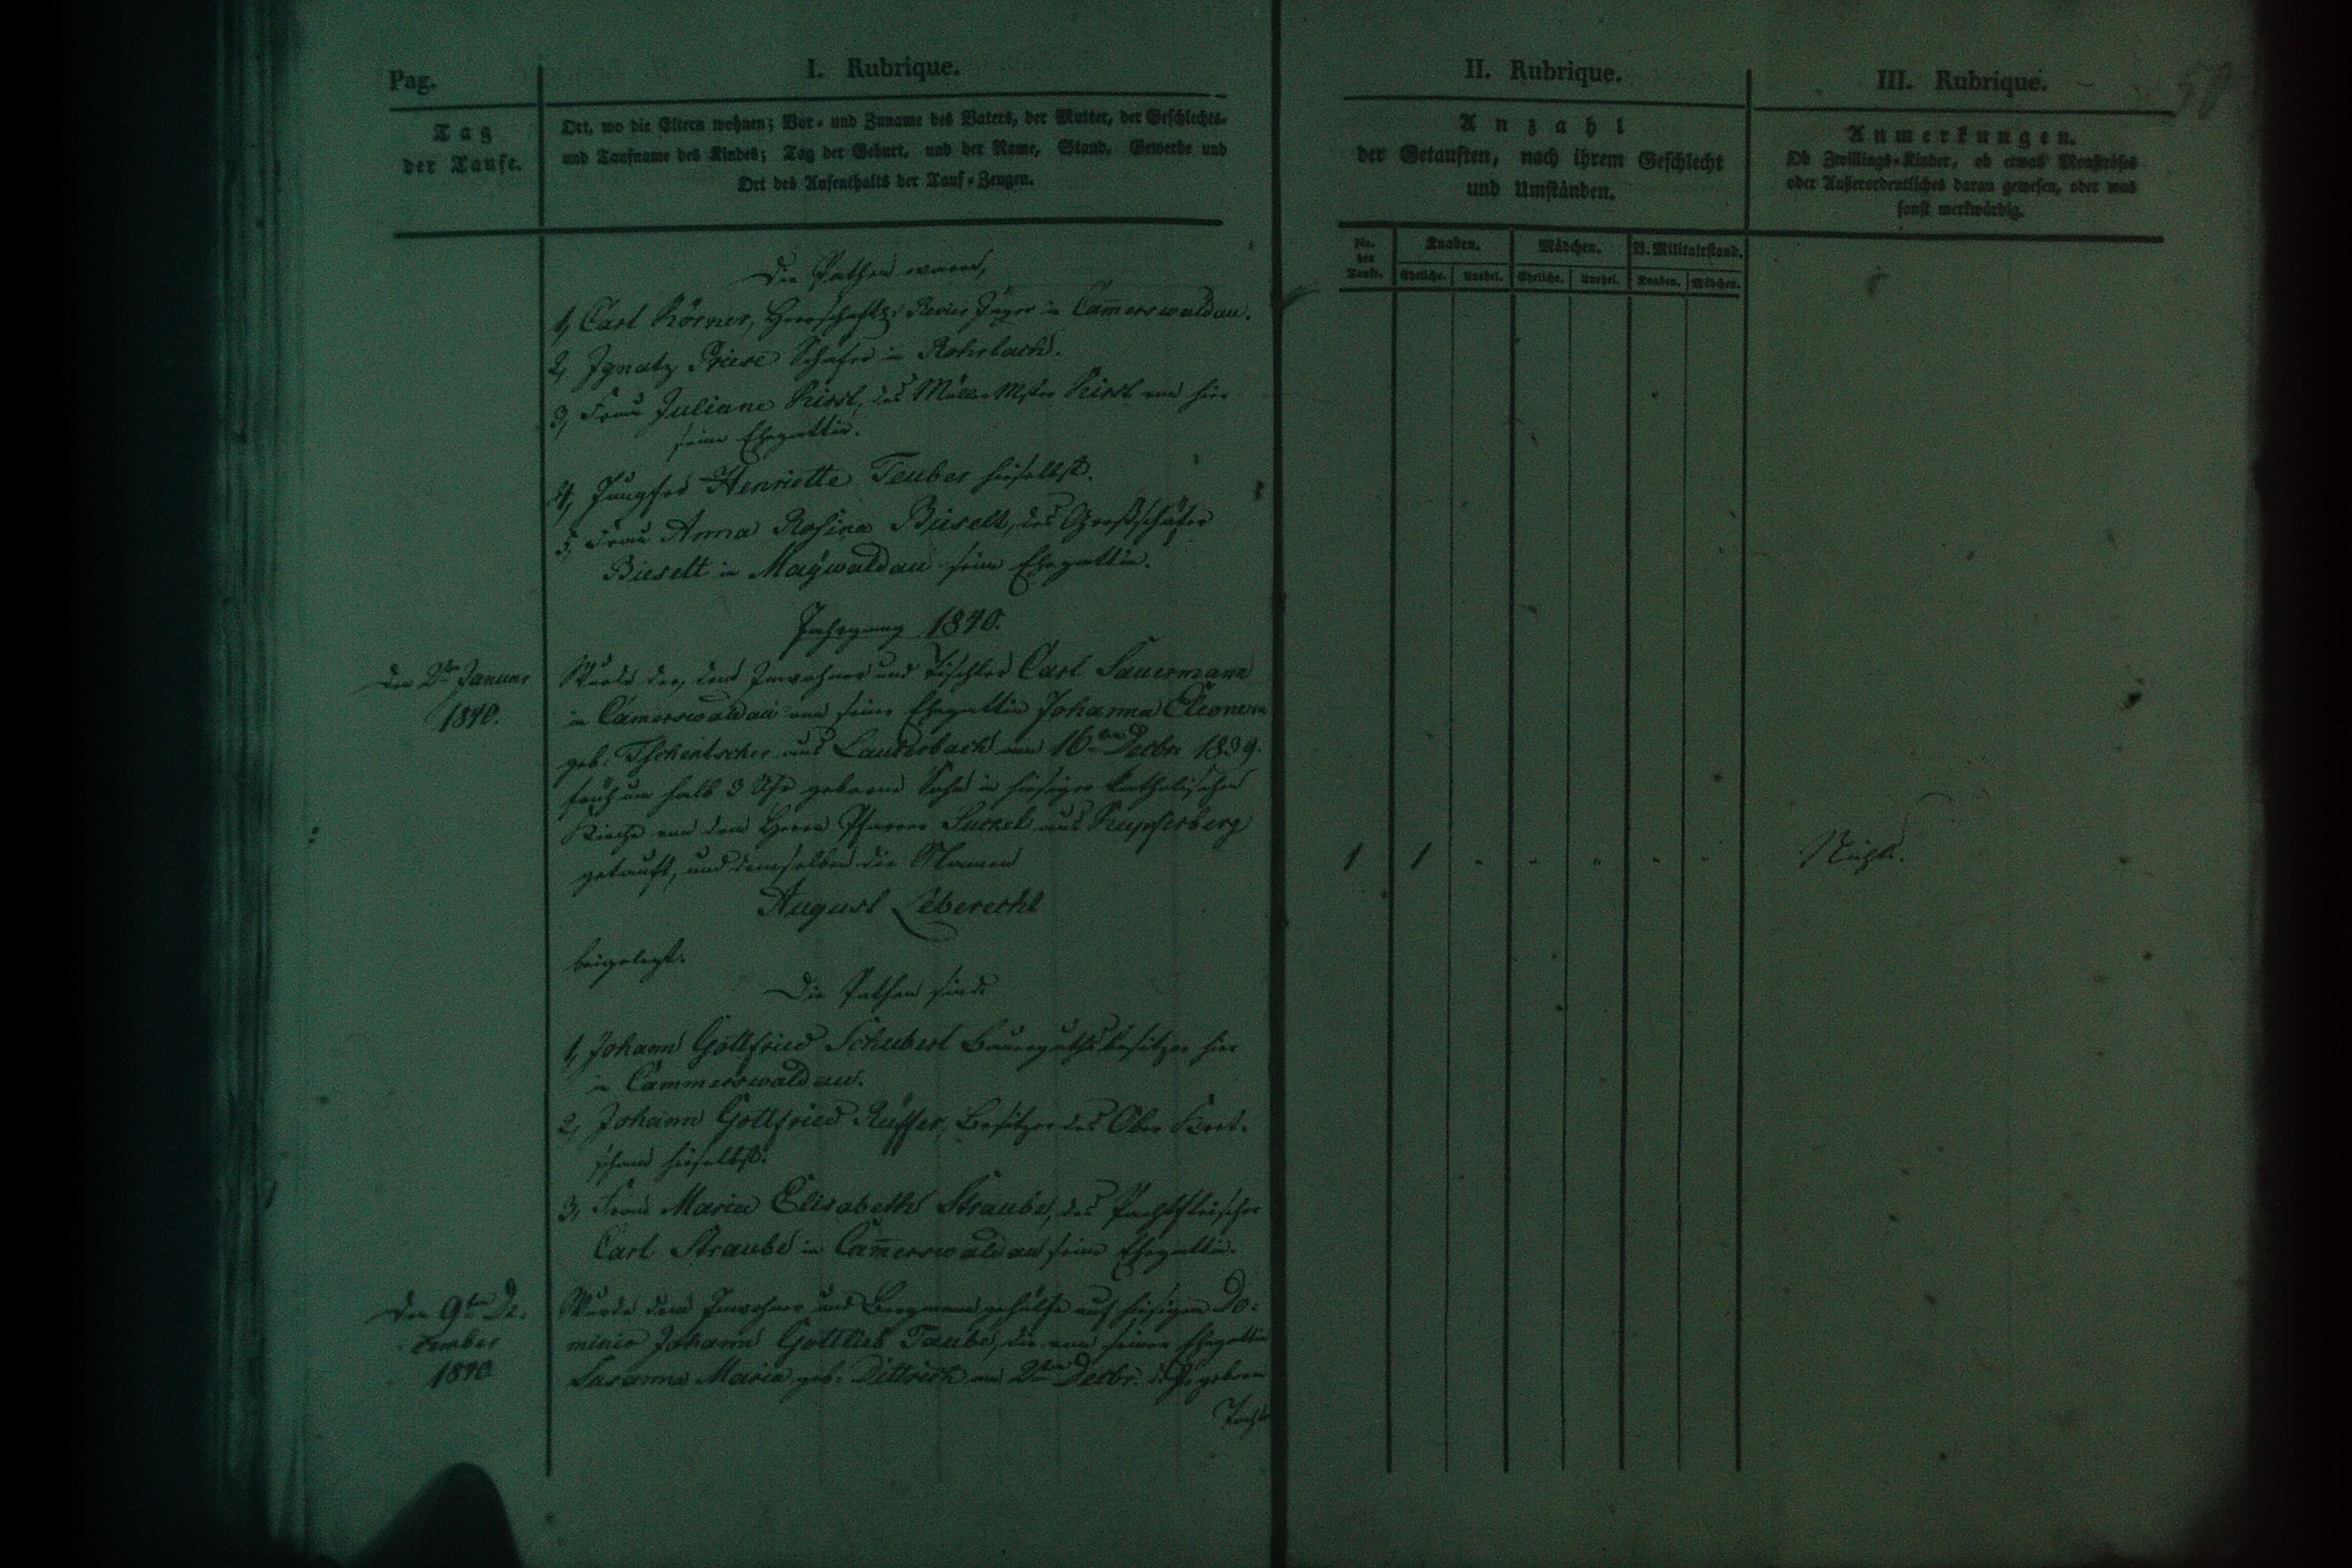 Pag.
I. Rubrique.
Tag
der Taufe.
Ort, wo die Eltern wohnen; Vor- und Zuname des Vaters, der Mutter, der Geschlechts-
und Taufname des Kindes; Tag der Geburt, und der Name, Stand, Gewerbe und
Ort des Aufenthalts der Tauf-Zeugen.
II. Rubrique.
Anzahl
der Getauften, nach ihrem Geschlecht
und Umständen.
III. Rubrique.
Anmerkungen.
Ob Zwillings-Kinder, ob etwas Monströses
oder Außerordentliches daran gewesen, oder was
sonst merkwürdig.
No. der Taufe.
Knaben.
Mädchen.
V. Militairstand.
Eheliche. Unehel. Eheliche. Unehel. Knaben. Mädchen.
Die Pathen waren,
1, Carl Körner, Herrschaftl. Revier Jäger in Cam̅erswaldau.
2, Ignatz Friese Schäfer in Rohrlach.
3, Frau Juliane Hirst, des Müller Mstr Hirst von hier
seine Ehegattin.
4, Jungfer Henriette Teuber hieselbst.
5, Frau Anna Rosina Bieselt, des Großschäfer
Bieselt in Maywaldau seine Ehegattin.
Jahrgang 1840.
Den 2ten Januar
1840.
Wurde der, dem Inwohner und Tischler Carl Sauermann
in Cam̅erswaldau von seiner Ehegattin Johanna Eleonora
geb: Tschentscher aus Lauterbach am 16ten Decbr. 1839.
früh um halb 3 Uhr geborne Sohn in hiesiger katholischen
Kirche von dem Herrn Pfarrer Suckel aus Kupferberg
getauft, und demselben die Namen
August Leberecht
beigelegt.
1 1 " " " " "
Nichts.
Die Pathen sind:
1, Johann Gottfried Schubert Bauerguthsbesitzer hier
in Cammerswaldau.
2, Johann Gottfried Rüffer, Besitzer des Ober Kret-
scham hieselbst.
3, Frau Maria Elisabeth Straube, des Pachtfleischer
Carl Straube in Cam̅erswaldau seine Ehegattin.
Den 9ten De-
cember
1840
Wurde dem Inwohner und auf hiesigem Do-
minio Johann Gottlieb Taube, die von seiner Ehegattin
Susanna Maria geb. Dittrich am 2ten Decbr. d. J. geborne
Tocht